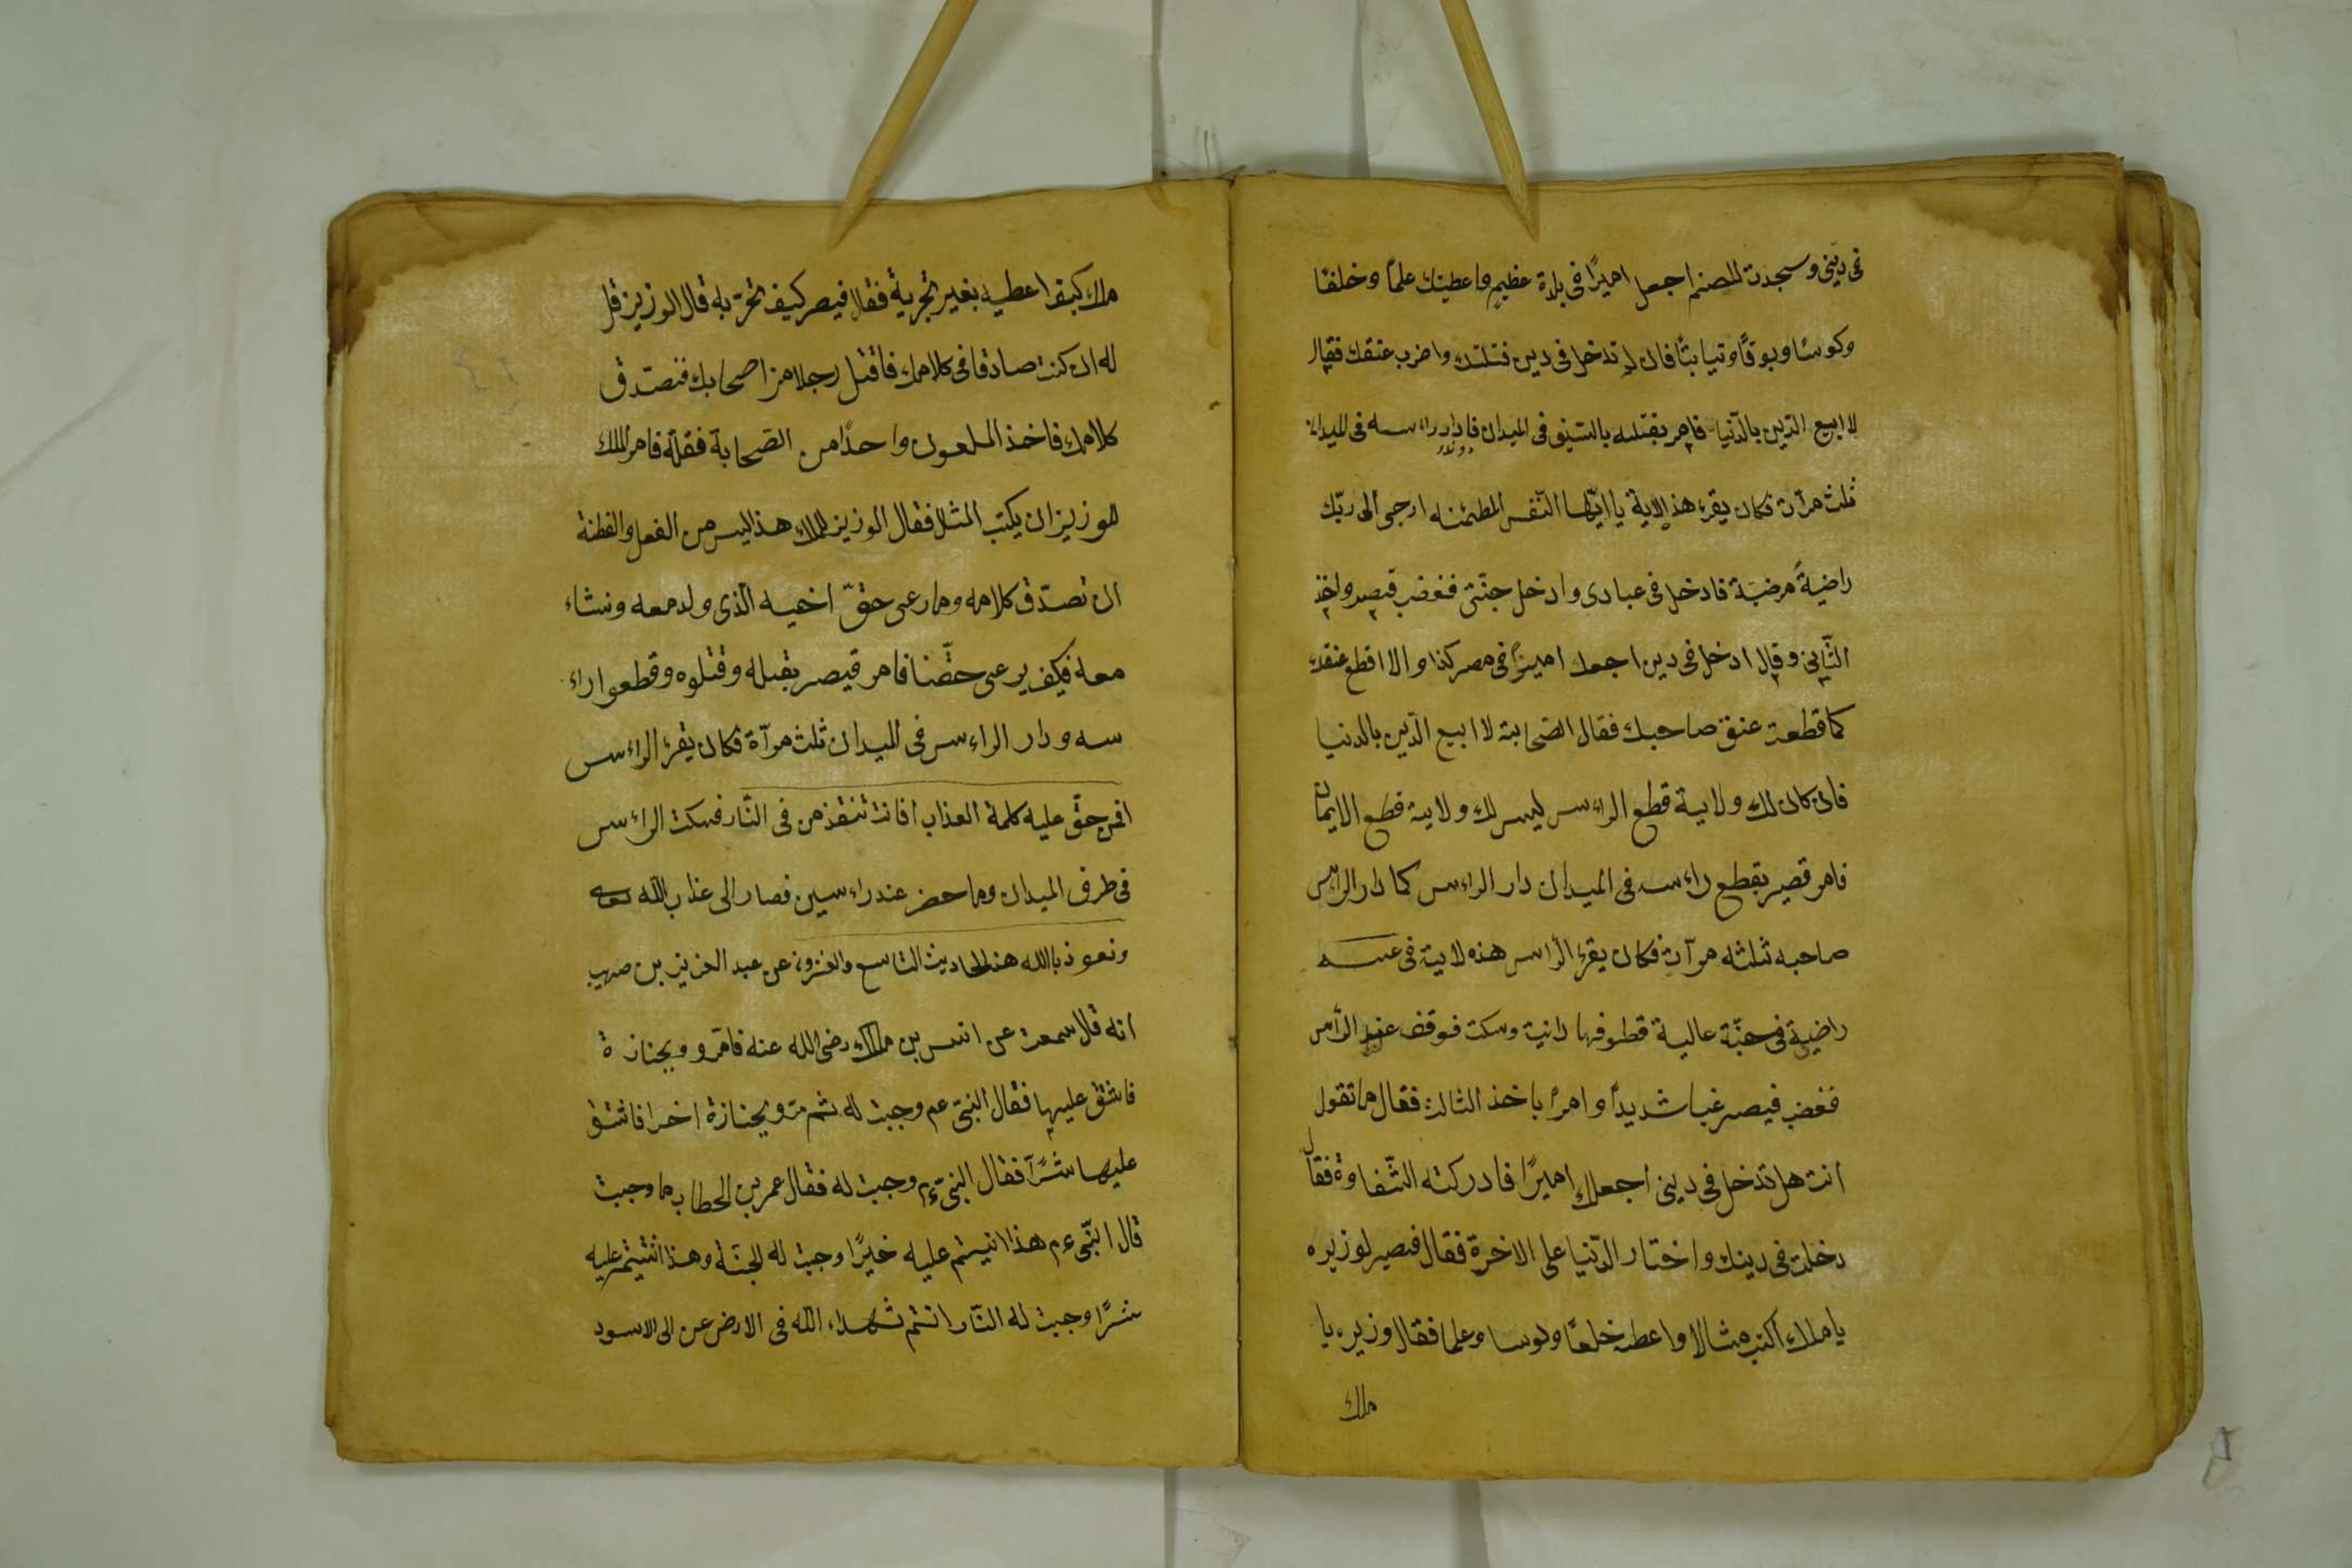 فى دينى وسجدت للصنم اجعل اميرًا فى بلدة عظيم واعطيتك علمًا وخلفًا
وكوسًا وبوقًا وثيابًا فان لم تدخل فى دين قتلتك واضرب عنقك فقال
لا ابيع الدّين بالدّنيا فامر بقتله بالسّيف فى الميدان فادار راءسه فى الميدان
ثلث مرّات فكان يقرء هذه الاية يا ايّتها النّفس المطمئنه ارجعى الى ربّك
راضيةً مرضيّة فادخل فى عبادى وادخل جنّتى فغضب قيصر واخذ
الثّانى وقال ادخل فى دين اجعلك اميرًا فى مصر كذا والا اقطع عنقك
كما قطعت عنق صاحبك فقال الصّحابة لا ابيع الدّين بالدنيا
فان كان لك ولاية قطع الراءس ليس لك ولاية قطع الايمان
فامر قصير بقطع راءسه فى الميدان دار الراءس كما دار الراءس
صاحبه ثلثه مرآت فكان يقرء الرّاس هذه لاية فى عيشه
راضية فى جنّة عالية قطوفها دانية وسكت فوقف عند الرّأس
فغضب قيصر غبا شديدًا وامر باخذ الثالث فقال ما تقول
انت هل تدخل فى دينى اجعلك اميرًا فادركته الشّقاوة فقال
دخلت فى دينك واختار الدّنيا على الاخرة فقال قيصر لوزيره
يا ملك اكتب مثالا واعطه خلعًا وكوسا وعلما فقال وزيره يا
ملك
ملك كيف اعطيه بغير تجربة فقال قيصر كيف تجرّبه قال الوزيز قل
له ان كنت صادقا فى كلامك فاقتل رجلا من اصحابك فنصدّق
كلامك فاخذ الملعون واحدًا من الصّحابة فقتله فامر الملك
للوزيز ان يكتب المثل فقال الوزيز للملك هذا ليس من الفعل والفطنة
ان تصدّق كلامه وما رعى حقّ اخيه الّذى ولد معه ونشاء
معه فكيف يرعى حقّنا فامر قيصر بقتله وقتلوه وقطعوا راء
سه ودار الراءس فى الميدان ثلث مرآة فكان يقرء الراءس
افمن حقّ عليه كلمة العذاب افانت تنقذ من فى النّار فسكت الراءس
فى طرف الميدان وما حضر عند راءسين فصار الى عذاب الله
ونعوذ بالله هذا لحاديث التاسع والعشرون عن عبد العزيز بن صهيب
انه قال سمعت عن انس بن مالك رضى الله عنه فامرّو وبجنازة
فاشق عليها فقال النّبى عم وجبت له ثم مرّو بجنازة اخرا فاشنق
عليها شرًّا فقال النّبى عم وجبت له فقال عمر بن الخطاب ما وجبت
قال النّبى عم هذا انيتم عليه خيرًا وجبت له الجنّة وهذا اثنيتم عليه
شرًّا وجبت له النّار انتم شهداء الله فى الارض عن ابى الاسود